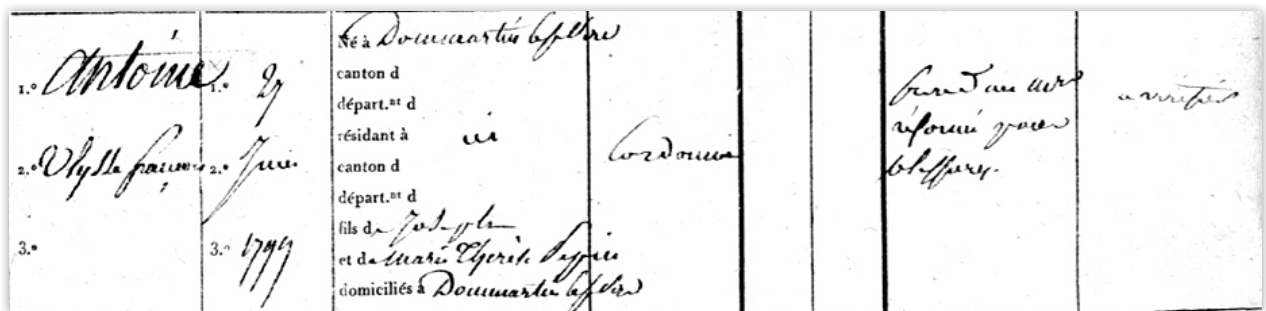 1.º Antoine
2.º Ulysse françois
3.º
1.º 27
2.º Juin
3.º 1799
Né à Dommartin
canton d
départ.nt d
résidant à ici
canton d
départ.nt d
fils de Joseph
et de Marie Thérèse
domiciliés à Dommartin
Cordonnier
réformé pour
blessures.